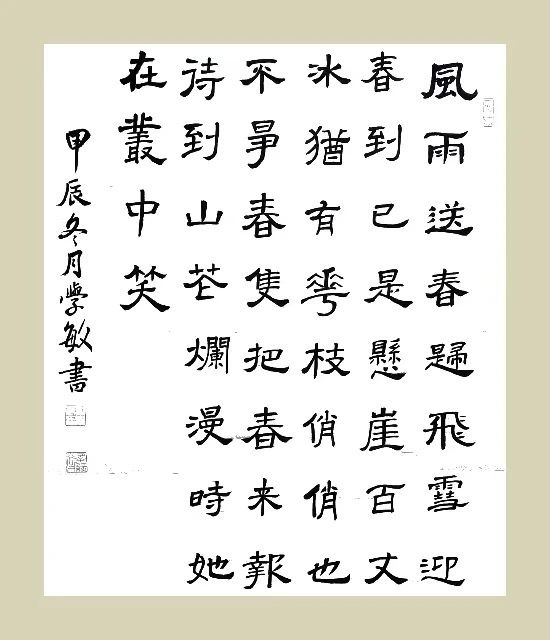 風雨送春歸飛雪迎
春到已是懸崖百丈
冰猶有華枝俏俏也
不爭春隻把春来報
待到山花爛漫時她
在叢中笑
甲辰冬月學敏書